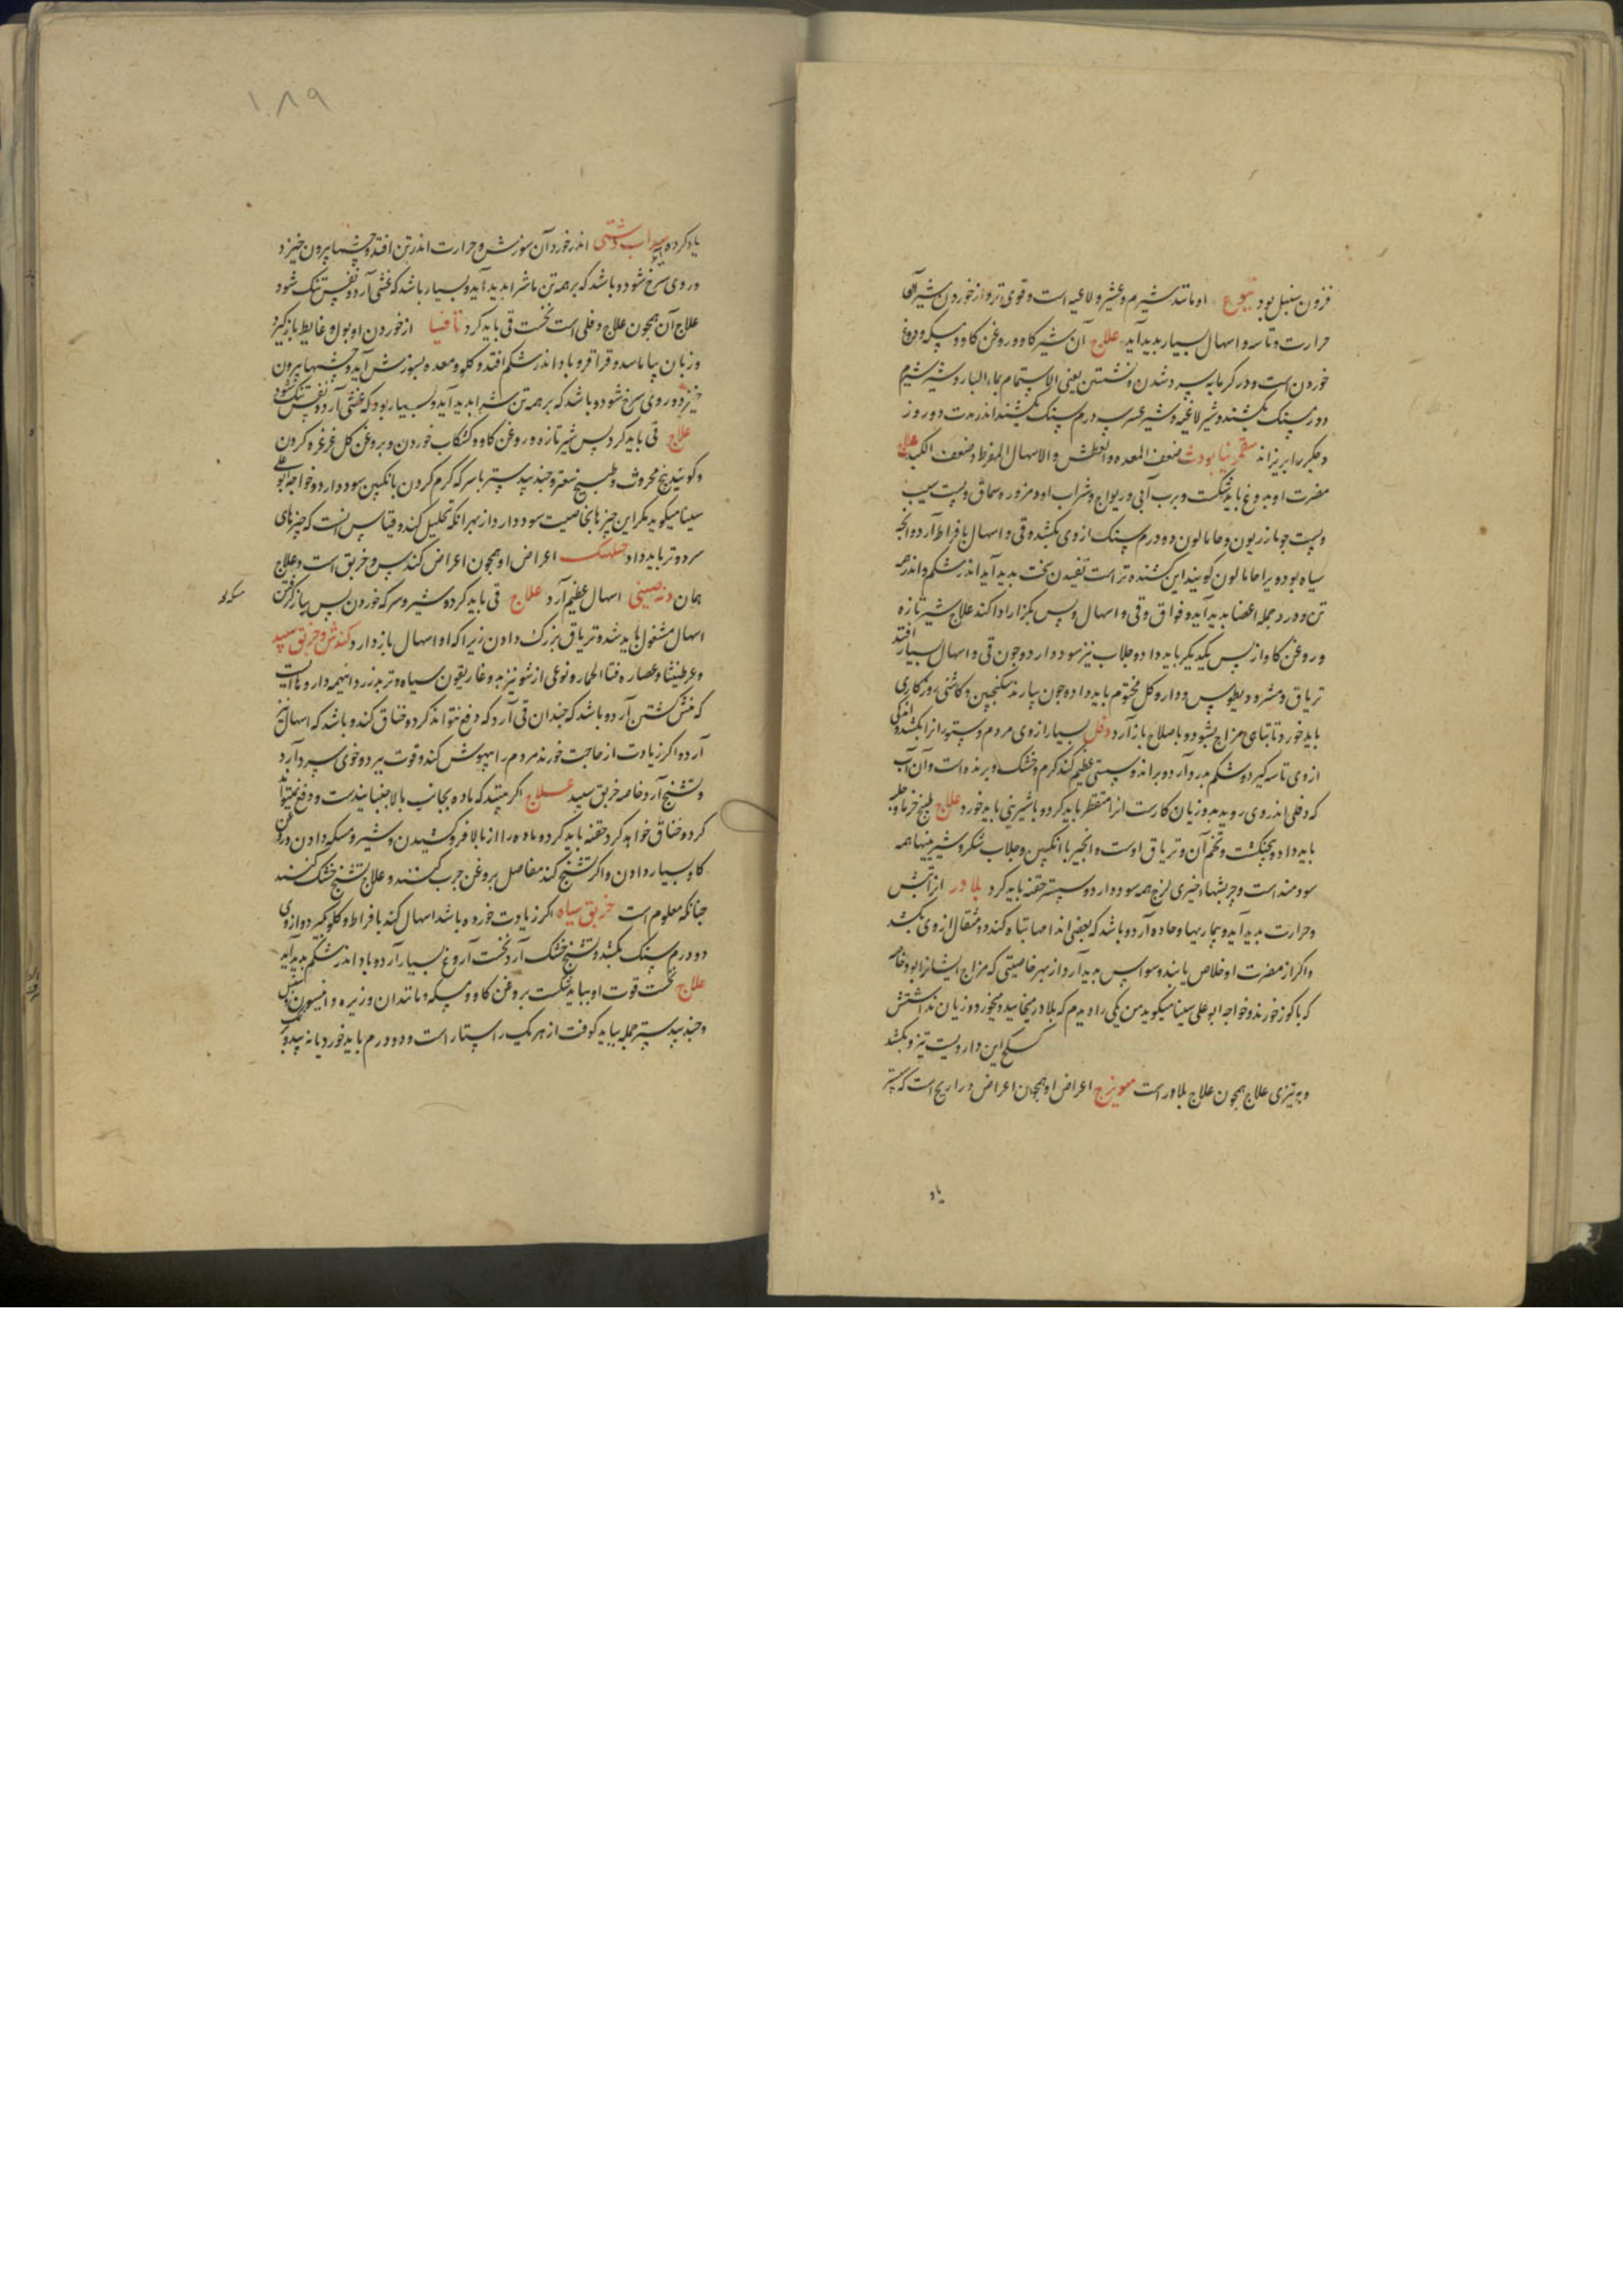 فزون سنبل بود یتوع او مانند شبرم و عشر و لاعیه است و قوی تر و از خوردن شیر آن
حرارت و تاسه و اسهال بسیار بدید آید علاج آن شیر کاو و روغن کاو و مسکه و دوغ
خوردن است و در کرمابه سرد شدن و نشستن یعنی الاستحمام بماء البارد و شیر شبرم
دو درم سنک بکشند و شیر لاعیه و شیر عشر سه درم سنک بکشند اندر مدت دو روز
و جکر را بریزاند سقمونیا بودث ضعف المعده و العطش و الاسهال المفرط و ضعف الکبد علاج
مضرت او بدوغ باید شکست و برب آبی و ریواج و شراب او و مزوره سماق و پست سیب
و پست جو مازریون و خامالون دو درم سنک از وی بکشد و قی و اسهال بافراط آرد و آنچه
سیاه بود ویرا خامالون کویند این کشنده تر است تفیدن سخت بدید آید اندر شکم و اندر همه
تن و درد جمله اعضا بدید آید و فواق و قی و اسهال و بس بکزار ادا کند علاج شیر تازه
و روغن کاو از پس یکدیکر باید داد و جلاب نیز سود دارد و چون قی و اسهال بسیار افتد
تریاق و مثرودیطوس و دوارو کل مختوم باید داد و چون بیارند سکنجبین و کاشنی روزکاری
باید خورد تا تباهی مزاج بشود و باصلاح باز آرد دفلی بسیار از وی مردم و ستور را بکشد و اندکی
از وی تاسه کیرد و شکم بدرد آرد و براند و سستی عظیم کند کرم و خشک و برنده است و آن آب
که دفلی اندر وی روید بد و زیان کارست آنرا مقطر باید کرد و باشیرینی باید خورد علاج طبیخ خرما و حلبه
باید داد و پنجنکشت و تخم آن و تریاق اوست و انجیر با انکبین و جلاب شکر و شیرینیها همه
سودمند است و چربشهاء خیری لزج همه سود دارد و سپستر حقنه باید کرد بلادر از آتش
و حرارت بدید آید و بیماریهاء حاده آرد و باشد که بعضی اندامها تباه کند و دو مثقال از وی بکشد
و اکر از مضرت او خلاص یابند وسواس بدید آرد از بهر خاصیتی که مزاج ایشانرا بود خاصه
که با کوز خورند و خواجه ابو علی سینا میکوید من یکی را دیدم که بلادر میخایید و میخورد و زیان نداشتش
کسلج این دارویست تیز و بکشد
و به تیزی علاج همچون علاج بلادر است مویزج اعراض او همچون اعراض ذراریح است که پیشتر
یاد
۱۸۹
یاد کرده شد سداب دشتی اندر خورد آن سوزش و حرارت اندر تن افتد و چشمها بیرون خیزد
و روی سرخ شود و باشد که بر همه تن ماشرا بدید آید و بسیار باشد که غشی آرد و نفس تنک شود
علاج آن همچون علاج دفلی است نخست قی باید کرد تافسیا از خوردن او بول و غایط باز کیرد
و زبان بیاماسد و قراقر و باد اندر شکم افتد و کلو و معده بسوزش آید و چشمها بیرون
خیزد و روی سرخ شود و باشد که بر همه تن شرا بدید آید و بسیار بود که غشی آرد و نفس تنک شود
علاج قی باید کرد پس شیر تازه و روغن کاو و کشکاب خوردن و بروغن کل غرغره کردن
و کویند بیخ محروث و طبیخ سعتر و جندبیدستر با سرکه کرم کردن با انکبین سود دارد و خواجه ابو علی
سینا میکوید مکر این چیزها بخاصیت سود دارد از بهر آنکه تحلیل کنده و قیاس آنست که چیزهای
سرد و تر باید داد جبلهنک اعراض او همچون اعراض کندس و خربق است و علاج
همان دند صینی اسهال عظیم آرد علاج قی باید کرد و شیر و سرکه خوردن پس بباز کرفتن
اسهال مشغول باید شد و تریاق بزرک دادن زیرا که او اسهال باز دارد کندش و خربق سپید
و عرطنیثا و عصاره قثا الحمار و نوعی از شونیز بد و غاریقون سیاه و تربد زرد اینهمه داروهاایست
که منش کشتن آرد و باشد که چندان قی آرد که دفع نتواند کرد و خناق کند و باشد که اسهال نیز
آرد و اکر زیادت از حاجت خورند مردم را بیهوش کند و قوت ببرد و خوی سرد آرد
و تشنج آرد خاصه خربق سپید علاج اکر بینند که ماده بجانب بالا جنبانیدست و دفع نمیتواند
کرد و خناق خواهد کرد حقنه باید کرد و ماده را از بالا فرو کشیدن و شیر و مسکه دادن و روغن
کاو بسیار دادن و اکر تشنج کند مفاصل بروغن چرب کنند و علاج تشنج خشک کنند
چنانکه معلوم است خربق سیاه اکر زیادت خورده باشد اسهال کند بافراط و کلو بکیرد و از وی
دو درم سنک بکشد و تشنج خشک آرد نخست آروغ بسیار آرد و باد اندر شکم بدید آید
علاج نخست قوت او بباید شکست بروغن کاو و مسکه و مانند آن و زیره و انیسون و سنبل
و جندبیدستر جمله بباید کوفت از هر یک راستار است و دو درم باید خورد یا نه